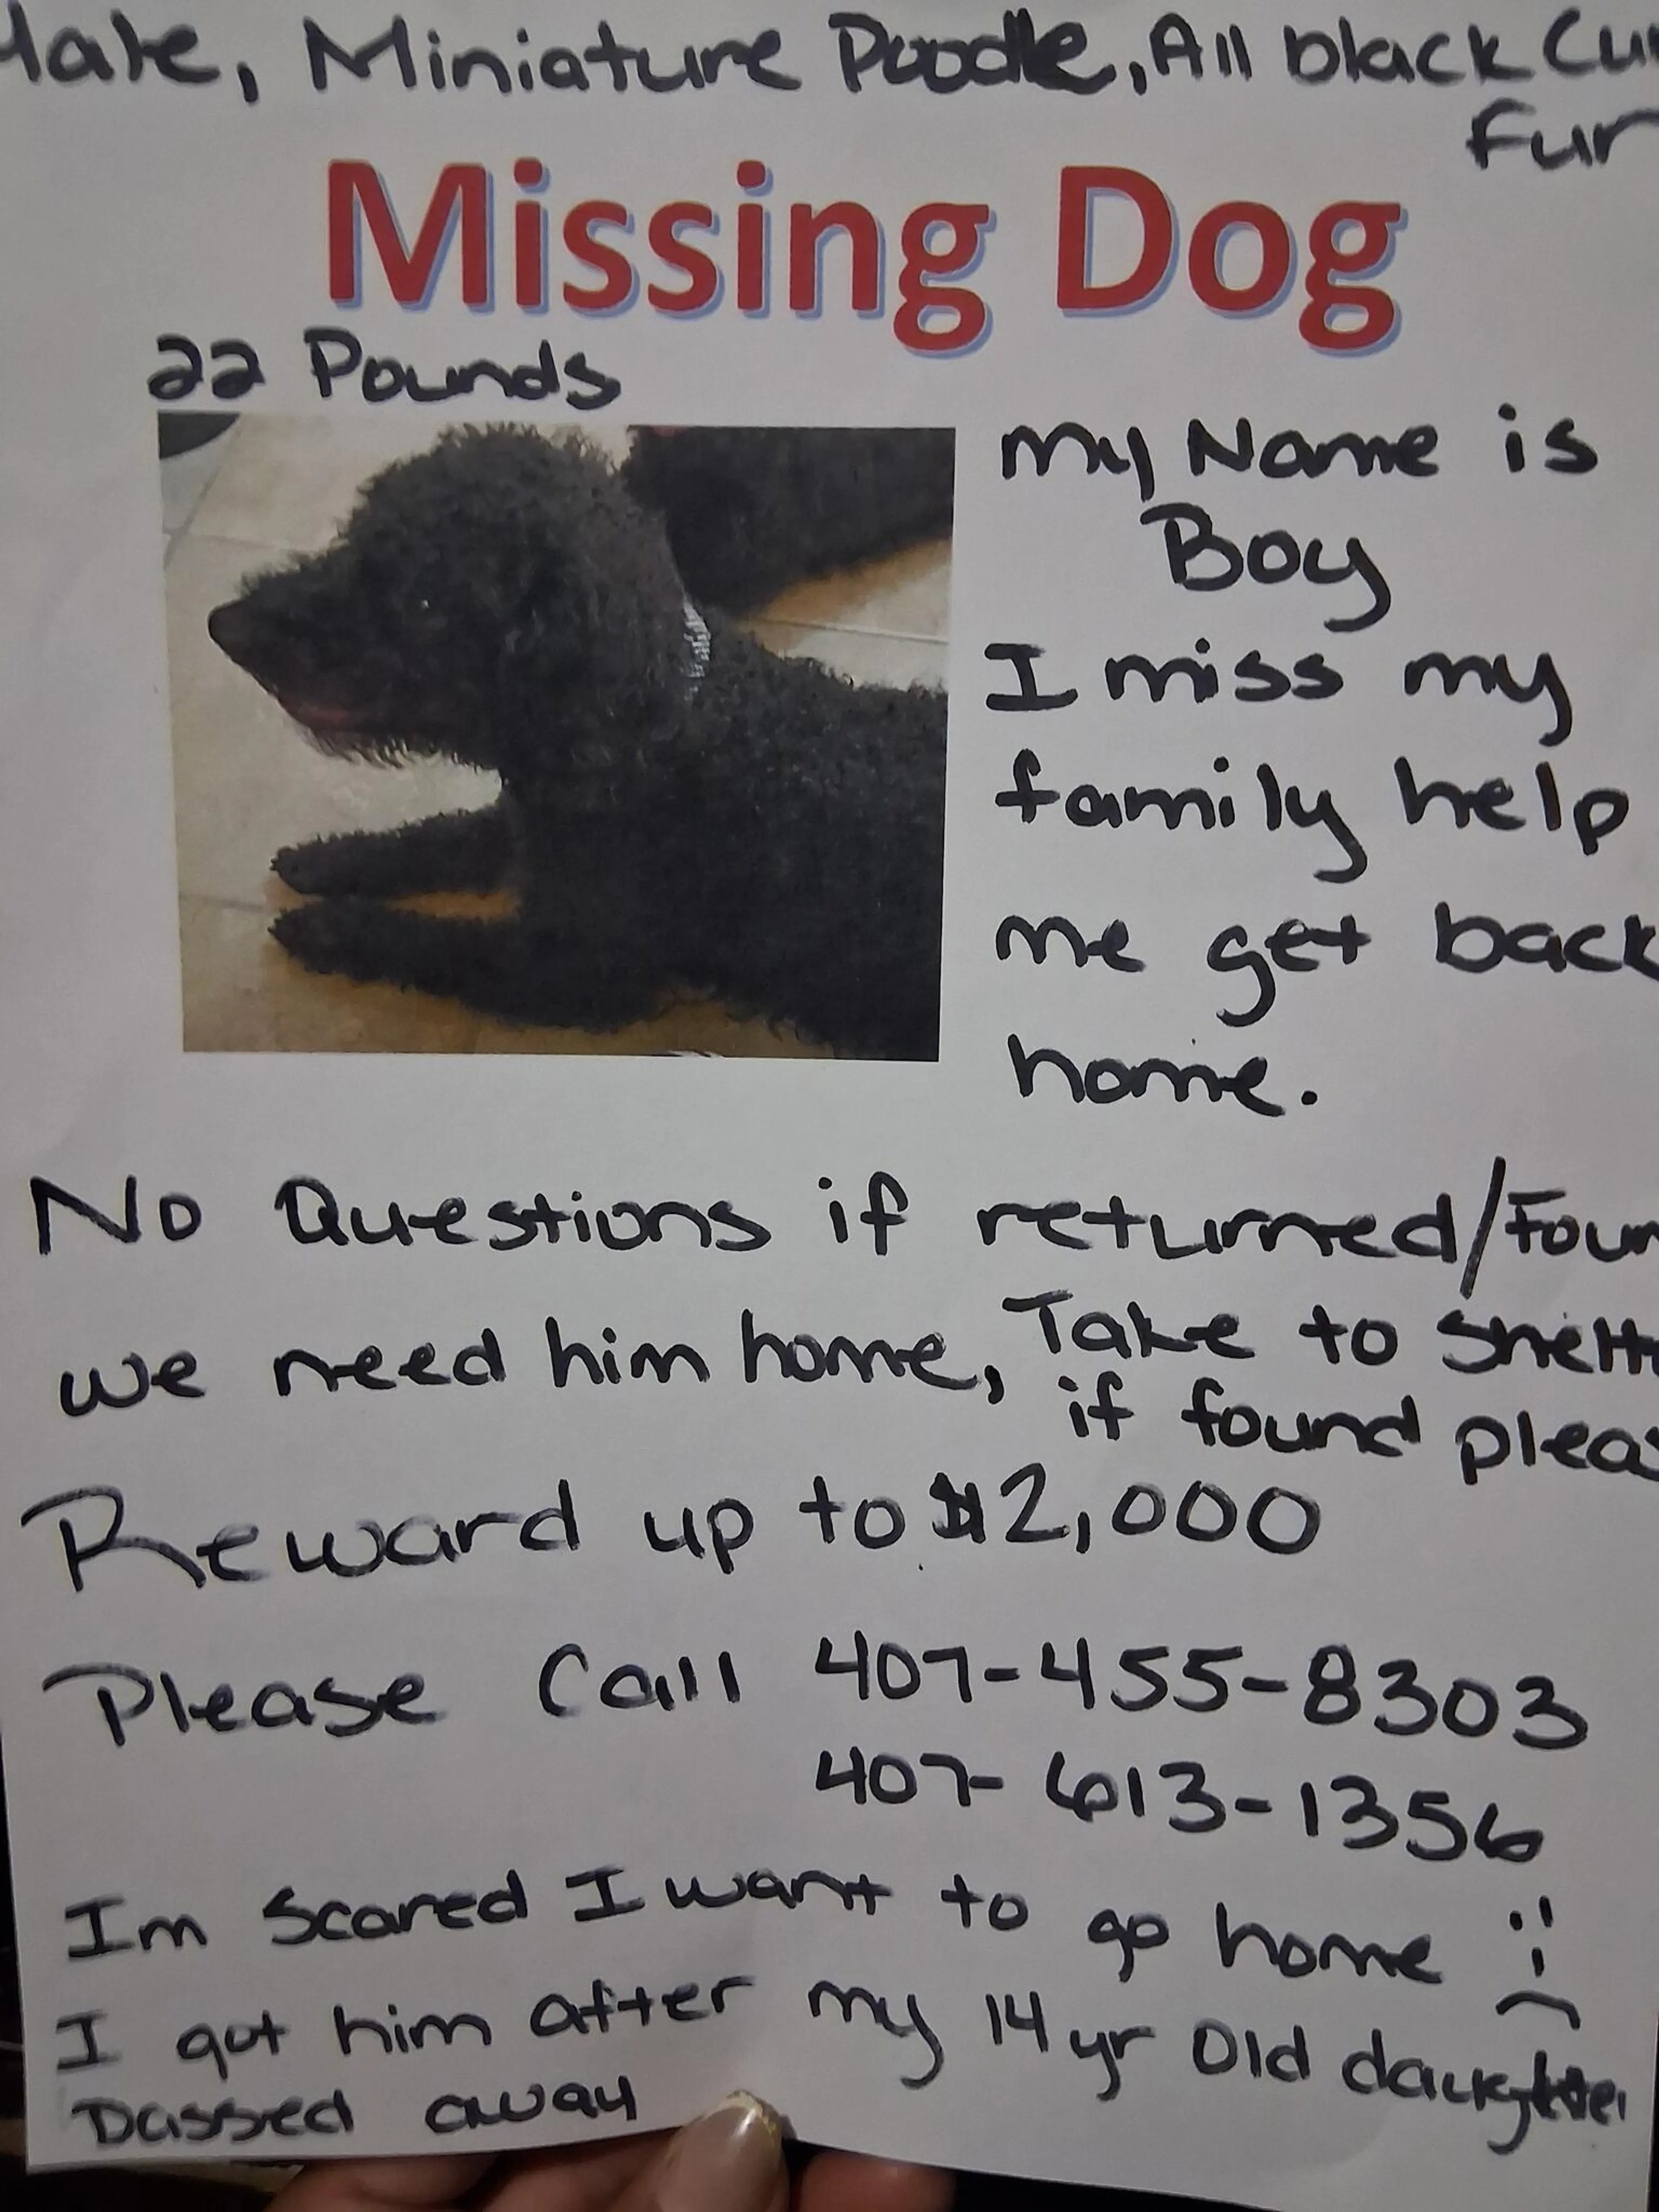 Male, Miniature Poodle, All black Cu
fur
Missing Dog
22 Pounds
My Name is
Boy
I miss my
family help
me get back
home.
No Questions if returned/Foun
we need him home, Take to shelt
if found pleas
Reward up to $2,000
Please Call 407-455-8303
407-613-1356
Im Scared I want to go home
I got him after my 14 yr old daughter
passed away